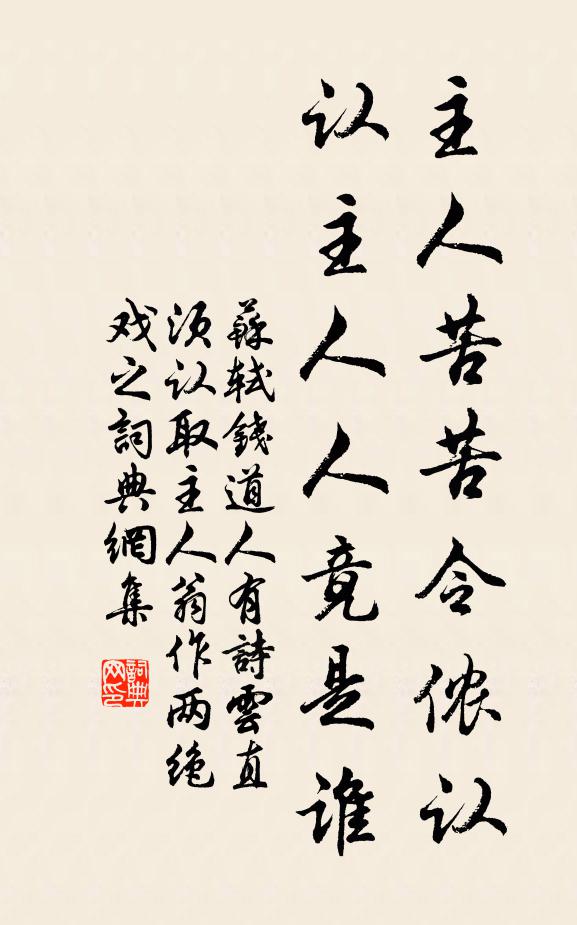 主人苦苦令侬认
认主人人竟是谁
蘇轼錢道人有詩雲直
须认取主人翁作两绝
戏之詞典網集
詞典网印